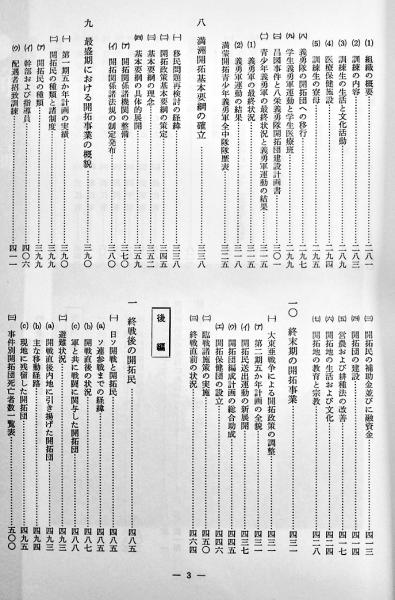 (1) 組織の概要……二八一
(2) 訓練の内容……二八二
(3) 訓練生の生活と文化活動……二八九
(4) 医療保健施設……二九四
(5) 訓練生の寮母……二九五
㈥ 義勇隊の開拓団への移行……二九七
㈦ 学生義勇軍運動と学生医療班……二九九
㈧ 昌図事件と八栄義勇隊開拓団建設計画書……三〇一
㈡ 青少年義勇軍の最終状況と義勇軍運動の結果……三一五
(1) 義勇軍の最終状況……三一五
(2) 義勇軍運動の結果……三一八
満蒙開拓青少年義勇軍全中隊隊歴表……三二五
八 満洲開拓基本要綱の確立……三三八
㈠ 移民問題再検討の経緯……三三八
㈡ 開拓政策基本要綱の策定……三四五
㈢ 基本要綱の理念……三五二
㈣ 基本要綱の具体的展開……三五四
(ア) 開拓関係諸機関の整備……三七〇
(イ) 開拓関係諸法規の制定発布……三八〇
九 最盛期における開拓事業の概貌……三九〇
㈠ 第一期五か年計画の実績……三九〇
㈡ 開拓民の種類と諸制度……三九九
(ア) 開拓民の種類……三九九
(イ) 幹部および指導員……四〇六
(ウ) 配遇者招致訓練……四一一
㈢ 開拓民の補助金並びに融資金……四一三
㈣ 開拓団の建設……四一四
㈤ 営農および耕種法の改善……四一七
㈥ 開拓地の生活および文化……四二四
㈦ 開拓地の教育と宗教……四二八
一〇 終末期の開拓事業……四三一
㈠ 大東亜戦争による開拓政策の調整……四三一
(ア) 第二期五か年計画の全貌……四三一
(イ) 開拓民送出運動の新展開……四四四
(ウ) 開拓団編成計画の総合助成……四五五
(エ) 開拓保健団の設立……四六〇
㈡ 臨戦諸施策の実施……四六二
㈢ 終戦直前の状況……四六四
後編
一 終戦後の開拓民……四八五
㈠ 日ソ開戦と開拓民……四八五
(a) ソ連参戦までの経緯……四八五
(b) 開戦直後の状況……四八七
(c) 軍と共に戦闘に関与した開拓団……四八八
㈡ 避難状況……四九三
(a) 開戦直後内地に引き揚げた開拓団……四九三
(b) 主な移動経路……四九四
(c) 現地に残留した開拓団……四九五
㈢ 事件別開拓団死亡者数一覧表……五〇〇
— 3 —